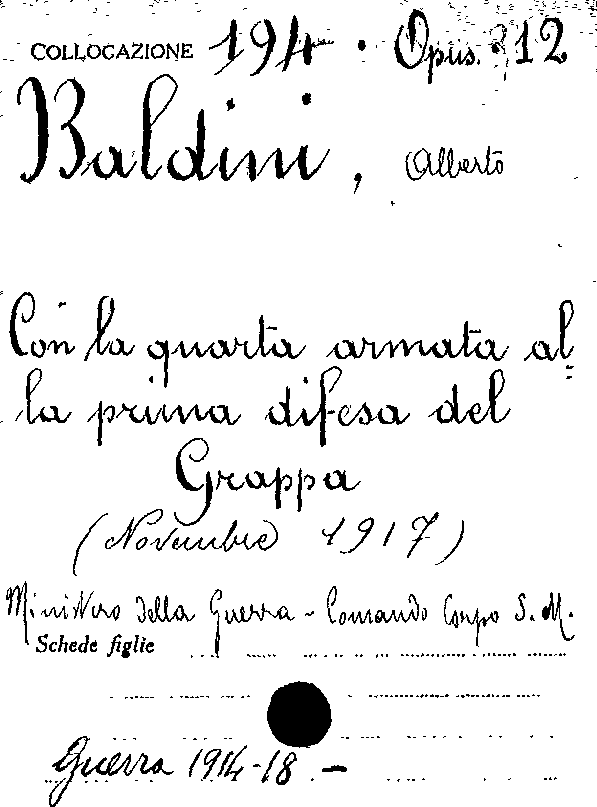 COLLOCAZIONE 194 . Opus. 312
Baldini, Alberto
Con la quarta armata al=
la prima difesa del
Grappa
(Novembre 1917)
Ministero della Guerra - Comando Corpo S. M.
Schede figlie
Guerra 1914-18. -